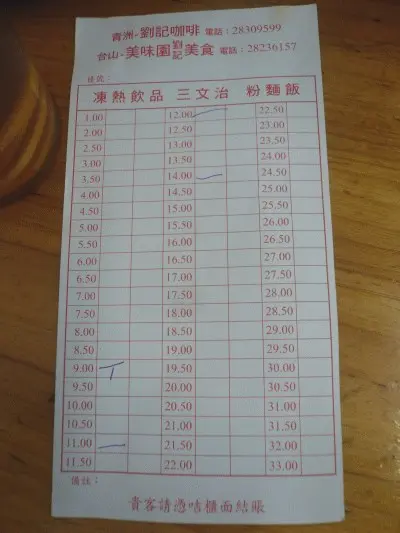 青洲-劉記咖啡 電話：28309599
台山-美味園劉記美食 電話：28236157
檯號：
凍熱飲品 三文治 粉麵飯
1.00 12.00 22.50
2.00 12.50 23.00
2.50 13.00 23.50
3.00 13.50 24.00
3.50 14.00 24.50
4.00 14.50 25.00
4.50 15.00 25.50
5.00 15.50 26.00
5.50 16.00 26.50
6.00 16.50 27.00
6.50 17.00 27.50
7.00 17.50 28.00
7.50 18.00 28.50
8.00 18.50 29.00
8.50 19.00 29.50
9.00 19.50 30.00
9.50 20.00 30.50
10.00 20.50 31.00
10.50 21.00 31.50
11.00 21.50 32.00
11.50 22.00 33.00
備註：
貴客請憑咭櫃面結賬